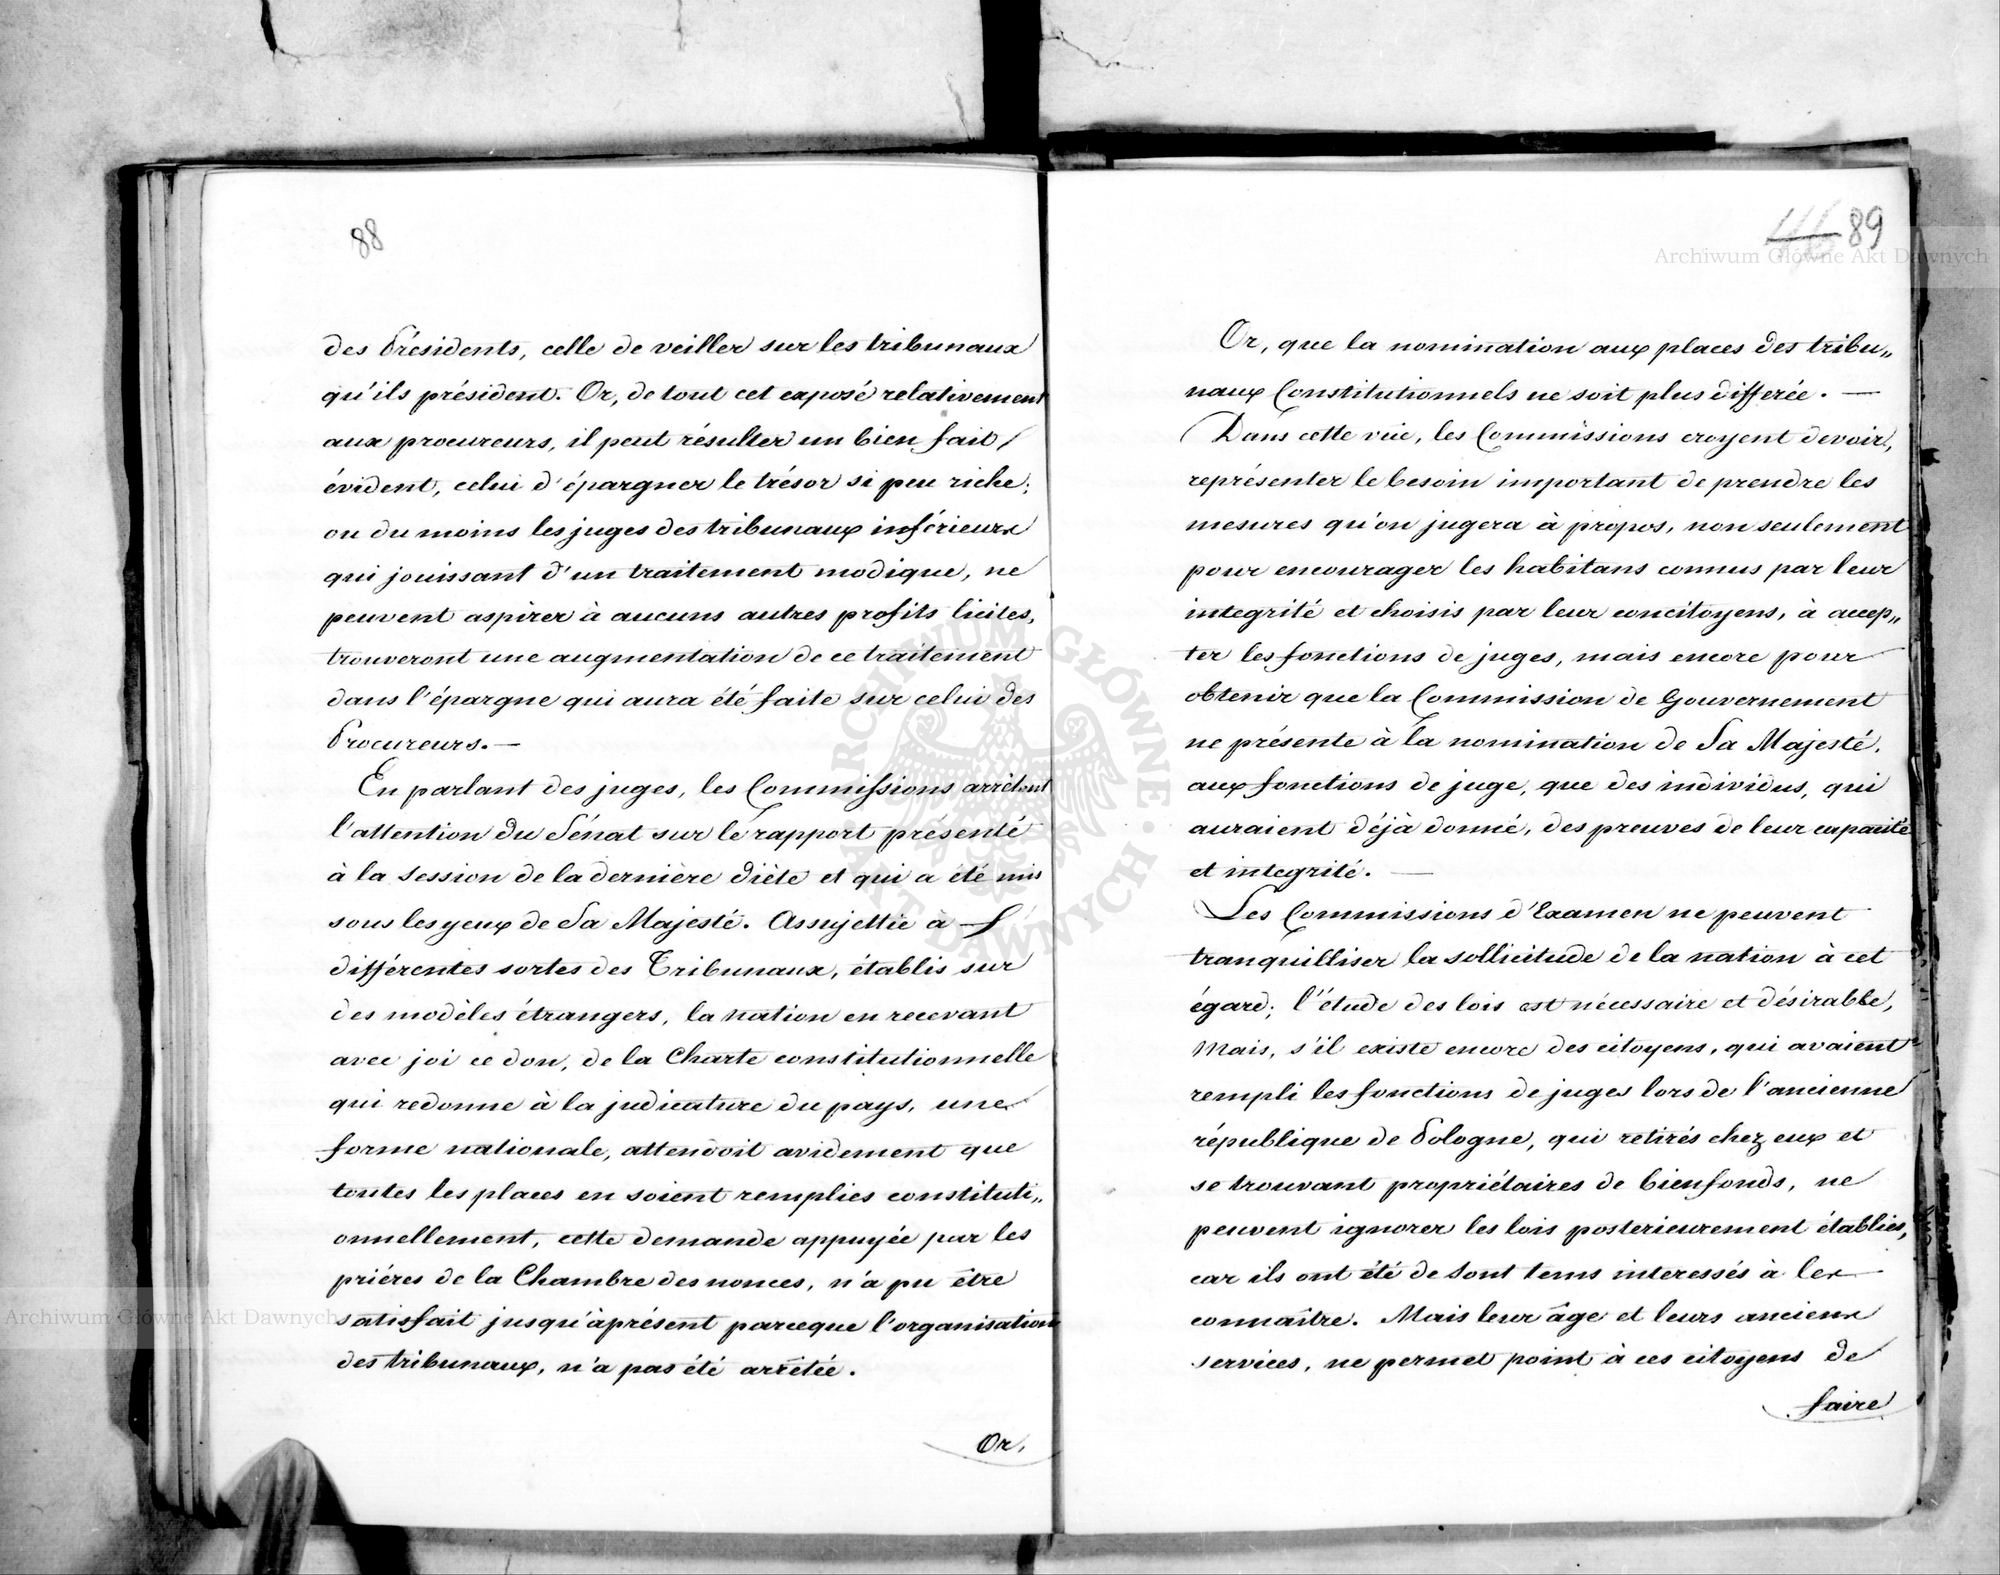 88
des Présidents, celle de veiller sur les tribunaux
qu'ils président. Or, de tout cet exposé relativement
aux procureurs, il peut résulter un bien fait
évident, celui d'épargner le trésor si peu riche;
ou du moins les juges des tribunaux inférieurs
qui jouissant d'un traitement modique, ne
peuvent aspirer à aucuns autres profits licites,
trouveront une augmentation de ce traitement
dans l'épargne qui aura été faite sur celui des
Procureurs.—
En parlant des juges, les Commissions arrêtent
l'attention du Sénat sur le rapport présenté
à la session de la dernière diète et qui a été mis
sous les yeux de Sa Majesté. Assujettie à
différentes sortes des Tribunaux, établis sur
des modèles étrangers, la nation en recevant
avec joi ce don, de la Charte constitutionnelle
qui redonne à la judicature du pays, une
forme nationale, attendoit avidement que
toutes les places en soient remplies constituti„
onnellement, cette demande appuyée par les
priéres de la Chambre des nonces, n'a pu être
satisfait jusqu'àprésent parceque l'organisation
des tribunaux, n'a pas été arrêtée.
Or,
89
Or, que la nomination aux places des tribu„
naux Constitutionnels ne soit plus differée. —
Dans cette vüe, les Commissions croyent devoir,
représenter le besoin important de prendre les
mesures qu'on jugera à propos, non seulement
pour encourager les habitans connus par leur
integrité et choisis par leur concitoyens, à accep„
ter les fonctions de juges, mais encore pour
obtenir que la Commission de Gouvernement
ne présente à la nomination de Sa Majesté,
aux fonctions de juge, que des individus, qui
auraient déjà donné, des preuves de leur capacité
et integrité. —
Les Commissions d'Examen ne peuvent
tranquilliser la sollicitude de la nation à cet
égard; l'étude des lois est nécessaire et désirable,
Mais, s'il existe encore des citoyens, qui avaient
rempli les fonctions de juges lors de l'ancienne
république de Pologne, qui retirés chez eux et
se trouvant propriétaires de bienfonds, ne
peuvent ignorer les lois posterieurement établies,
car ils ont été de tout tems interessés à les
connaître. Mais leur âge et leurs anciens
services, ne permet point à ces citoyens de
faire
Archiwum Główne Akt Dawnych
Archiwum Główne Akt Dawnych
ARCHIWUM GŁÓWNE AKT DAWNYCH